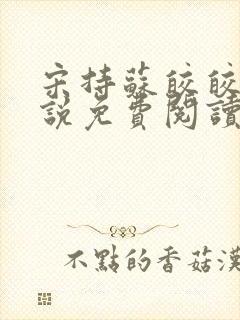 宋持蘇皎皎
說免費閱讀
不點的香菇漢